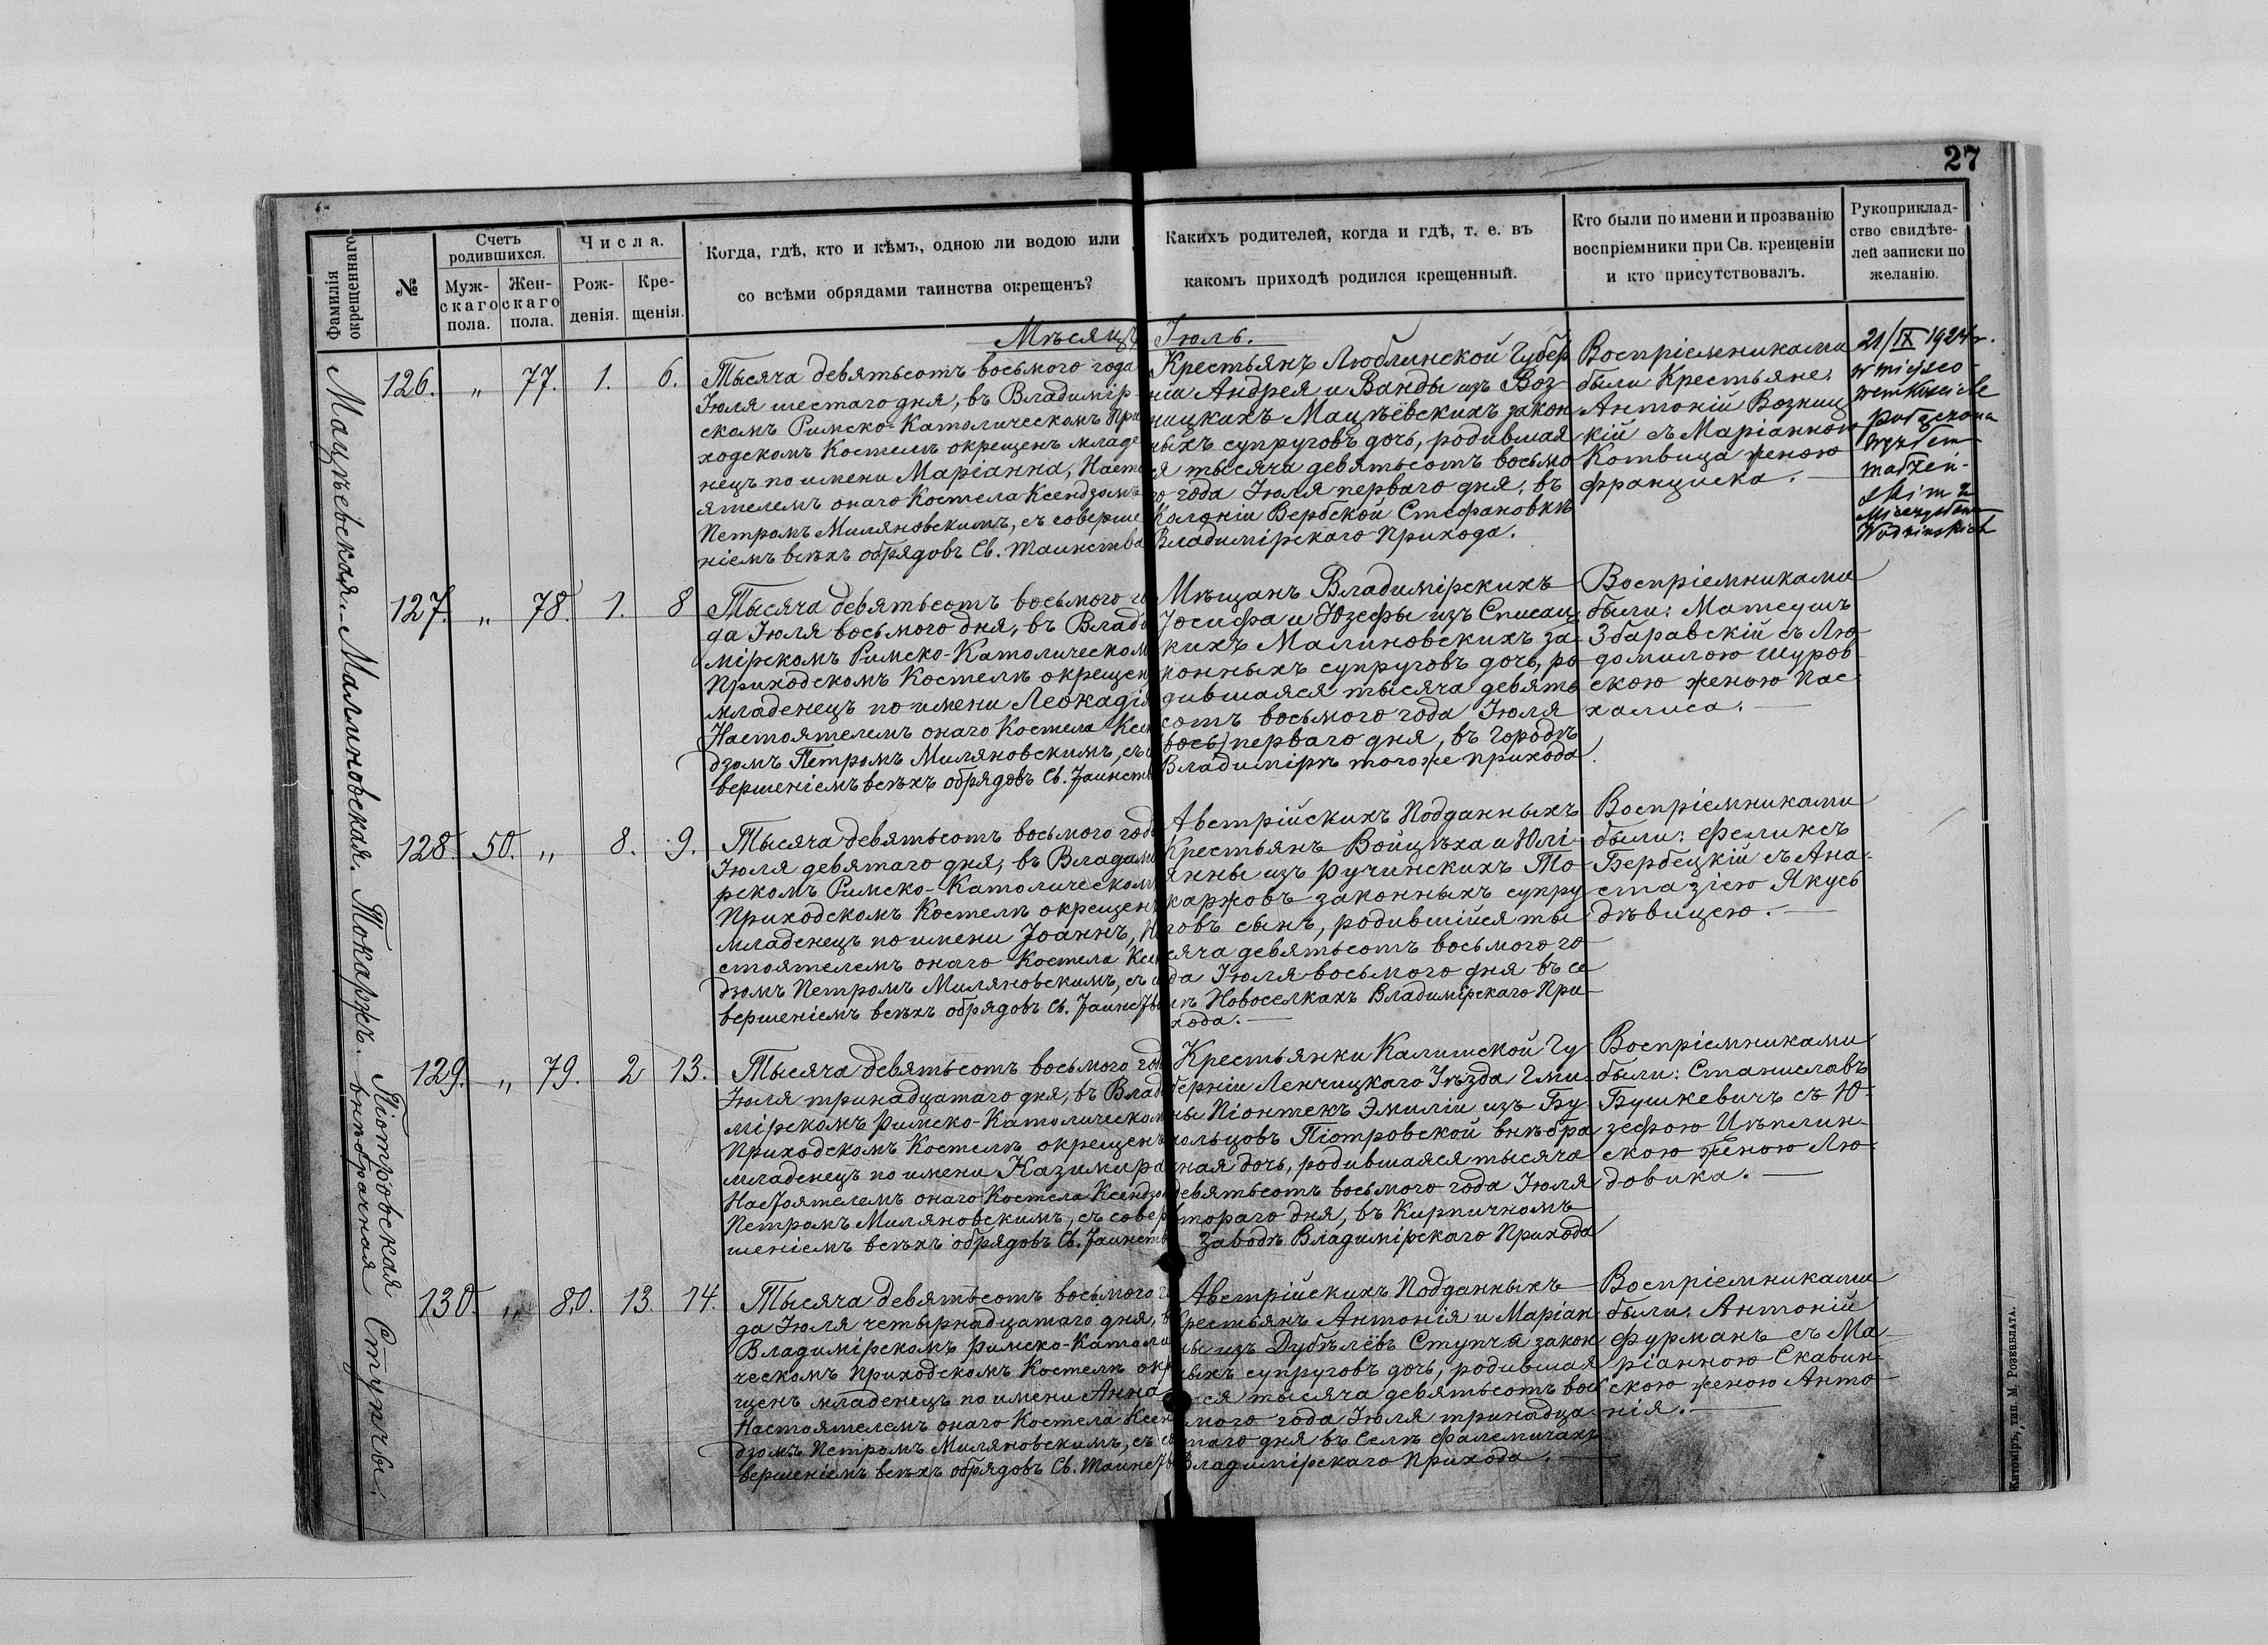 27
Фамилія окрещеннаго
№
Счетъ родившихся.
Муж-
скаго
пола.
Жен-
скаго
пола.
Числа.
Рож-
денія.
Кре-
щенія.
Когда, гдѣ, кто и кѣмъ, одною ли водою или
со всѣми обрядами таинства окрещенъ?
Какихъ родителей, когда и гдѣ, т. е. въ
какомъ приходѣ родился крещенный.
Кто были по имени и прозванію
воспріемники при Св. крещеніи
и кто присутствовалъ.
Рукоприклад-
ство свидѣте-
лей записки по
желанію.
Мѣсяцъ Іюль.
Мацѣевская.
126. " 77. 1. 6.
Тысяча девятьсотъ восьмого года
Іюля шестаго дня, въ Владимір-
скомъ Римско-Католическомъ При
ходскомъ Костелѣ окрещенъ младе
нецъ по имени Маріанна, Насто
ятелемъ онаго Костела Ксендзомъ
Петромъ Миляновскимъ, съ соверше
ніемъ всѣхъ обрядовъ Св. Таинства
Крестьянъ Люблинской Губер
ніи Андрея и Ванды изъ Воз-
ницкихъ Мацѣёвскихъ закон
ныхъ супруговъ дочь, родившая
ся тысяча девятьсотъ восьмо
го года Іюля перваго дня, въ
Колоніи Вербской Стефановкѣ
Владимірскаго Прихода.
Воспріемниками
были Крестьяне:
Антоній Возниц
кій съ Маріанною
Котвица женою
Франциска.
21/IX 1924 r.
w miejsco-
wem kościele
połączona
węzłem
małżeń-
skim z
Mieczysławem
Malinowская
127. " 78. 1. 8
Тысяча девятьсотъ восьмого го
да Іюля восьмого дня, въ Влади
мірскомъ Римско-Католическом
Приходскомъ Костелѣ окрещен
младенецъ по имени Леокадія
Настоятелемъ онаго Костела Ксен
дзомъ Петромъ Миляновскимъ, съ со
вершеніемъ всѣхъ обрядовъ Св. Таинств
Мѣщанъ Владимірскихъ
Іосифа и Юзефы изъ Списац
кихъ Малиновскихъ за-
конныхъ супруговъ дочь, ро
дившаяся тысяча девять
сотъ восьмого года Іюля
(вось) перваго дня, въ Городѣ
Владимірѣ того же прихода.
Воспріемниками
были: Матеушъ
Збаравскій съ Лю
домилою Щуров
скою женою Пас-
халиса.
Токаржъ.
128. 50. " 8. 9.
Тысяча девятьсотъ восьмого года
Іюля девятаго дня, въ Владими
рскомъ Римско-Католическом
Приходскомъ Костелѣ окрещен
младенецъ по имени Іоаннъ, На
стоятелемъ онаго Костела Ксен
дзомъ Петромъ Миляновскимъ, съ со
вершеніемъ всѣхъ обрядовъ Св. Таинства
Австрійскихъ Подданныхъ
Крестьянъ Войцѣха и Юлі-
янны изъ Ручинскихъ То-
каржовъ законныхъ супру
говъ сынъ, родившійся ты
сяча девятьсотъ восьмого го
да Іюля восьмого дня въ се
лѣ Новоселкахъ Владимірскаго При-
хода.
Воспріемниками
были: Феликсъ
Бербецкій съ Ана-
стазіею Якусь
дѣвицею.
Піотровская
внѣбрачная
129. " 79. 2 13.
Тысяча девятьсотъ восьмого год
Іюля тринадцатаго дня, въ Влади
мірскомъ Римско-Католическом
Приходскомъ Костелѣ окрещенъ
младенецъ по имени Казимира
Настоятелемъ онаго Костела Ксендзом
Петромъ Миляновскимъ, съ совер
шеніемъ всѣхъ обрядовъ Св. Таинств
Крестьянки Калишской Гу-
берніи Ленчицкаго Уѣзда Гми-
ны Піонтекъ Эмиліи изъ Бу-
кольцовъ Піотровской внѣбра
чная дочь, родившаяся тысяча
девятьсотъ восьмого года Іюля
втораго дня, въ Кирпичномъ
Заводѣ Владимірскаго Прихода
Воспріемниками
были: Станиславъ
Бушкевичъ съ Ю-
зефою Цѣплин-
скою женою Лю-
довика.
Ступчы.
130. " 80. 13 14.
Тысяча девятьсотъ восьмого го
да Іюля четырнадцатаго дня, в
Владимірскомъ Римско-Католи
ческомъ Приходскомъ Костелѣ окре
щенъ младенецъ по имени Анна
Настоятелемъ онаго Костела Ксен
дзомъ Петромъ Миляновскимъ, съ со
вершеніемъ всѣхъ обрядовъ Св. Таинства
Австрійскихъ Подданныхъ
Крестьянъ Антонія и Маріан
ны изъ Дубѣлёвъ Ступча закон
ныхъ супруговъ дочь, родившая
ся тысяча девятьсотъ вось
мого года Іюля тринадца-
таго дня въ Селѣ Фалемичахъ
Владимірскаго Прихода.
Воспріемниками
были: Антоній
Фурманъ съ Ма-
ріанною Скавин-
скою женою Анто
нія.
Житоміръ, тип. М. Розенблата.